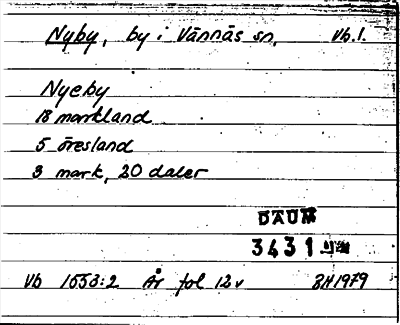 Nyby, by i Vännäs sn. Vb.l.
Nyeby
18 markland
5 öresland
3 mark, 20 daler
DAUM
3431
Vb 1553:2 År fol 12v BH1979